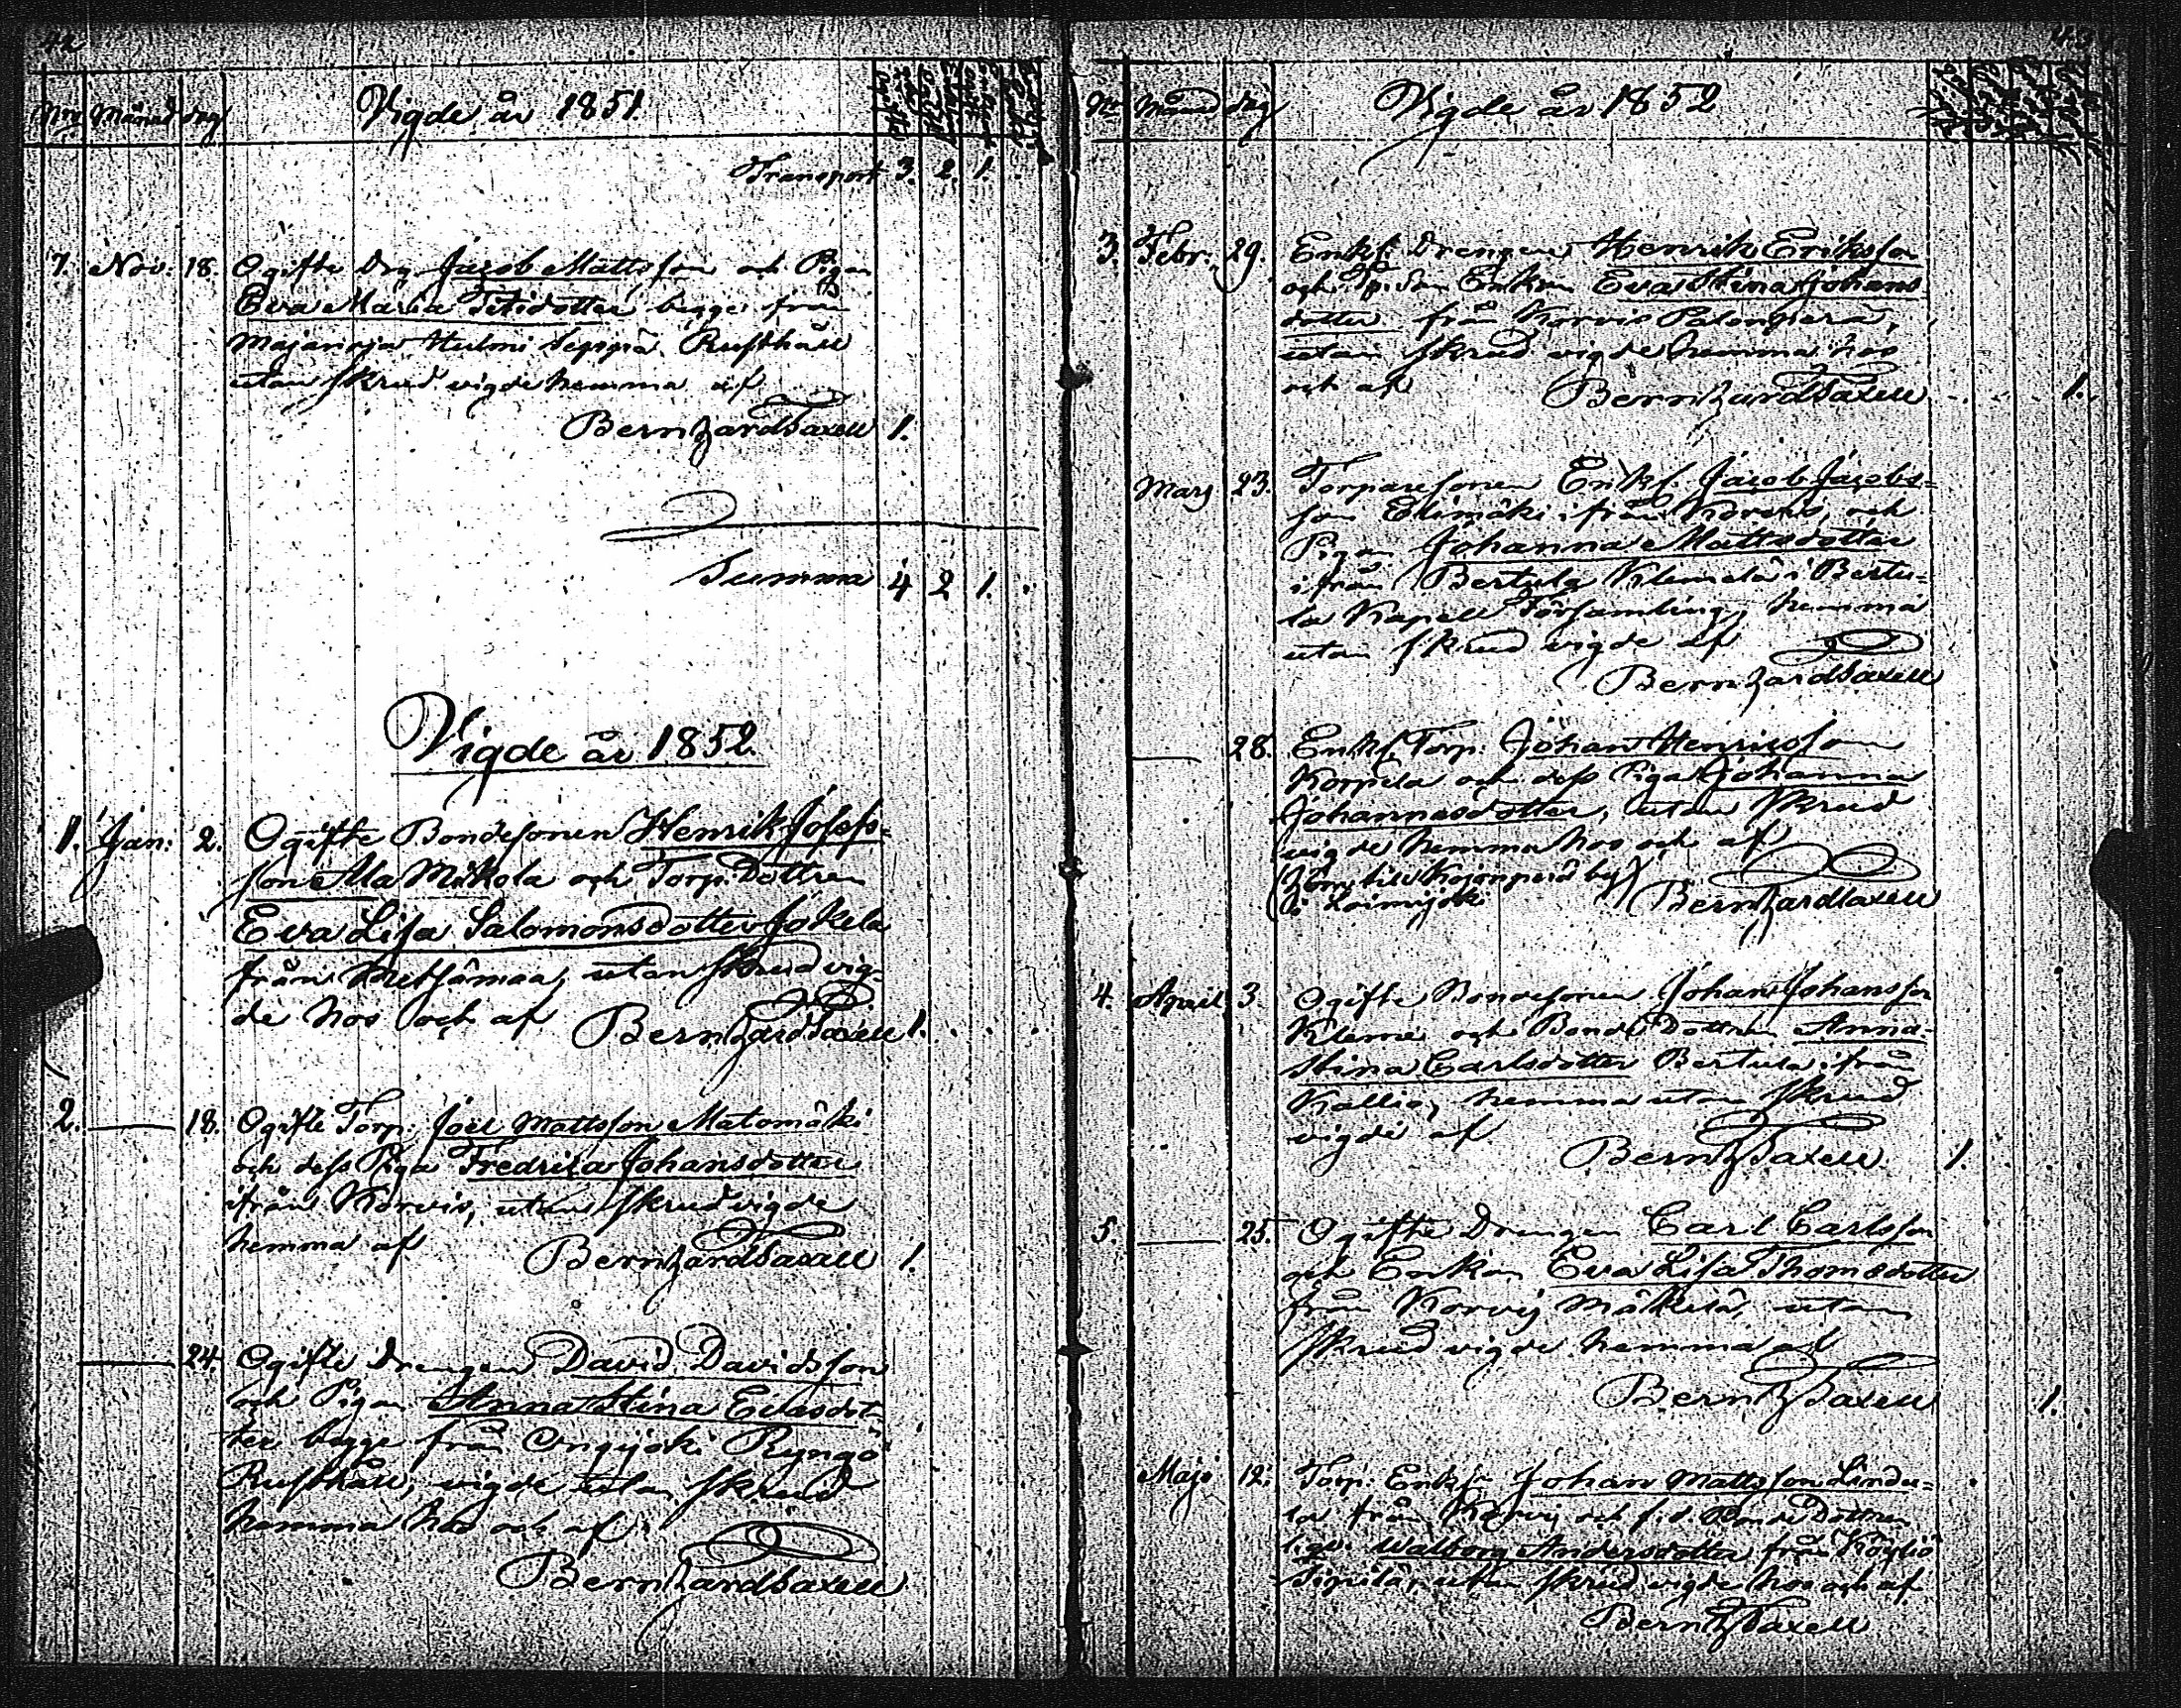 42
Nro Månad dag Vigde år 1851.
Transport 3. 2. 1.
7. Nov: 18. Ogifte Drg Jacob Mattsson och Pigan
Eva Maria Titidotter begge från
Majanoja Hulmi Seppä Rusthåll
utan skrud vigde hemma af
Bernhard Saxell 1.
Summa 4 2 1.
Vigde år 1852.
1. Jan: 2. Ogifte Bondesonen Henrik Josefs-
son Ala Mikola och Torp. Dottren
Eva Lisa Salomonsdotter Jokela
från Metsämaa, utan skrud vig-
de hos och af Bernhard Saxell 1.
2. — 18. Ogifte Torp: Joel Mattsson Matomäki
och dess Piga Fredrika Johansdotter
ifrån Korvis, utan skrud vigde
hemma af Bernhard Saxell 1.
— 24. Ogifte Drengen David Davidsson
och Pigan Anna Stina Ericsdot-
ter begge från Ypäjoki Ryngö
Rusthåll, vigde utan skrud
hemma hos och af
Bernhard Saxell
43
Nr Månad dag Vigde år 1852
3. Febr. 29. Enkf. Drengen Henrik Eriksson
och Enkan Eva Stina Johans
dotter från Korvis Palonperä,
utan skrud vigde hemma hos
och af Bernhard Saxell 1.
Mars 23. Torparesonen Enkf. Jacob Jacobs-
son Elimäki ifrån Korvis, och
Pigan Johanna Mattsdotter
ifrån Bertula Klemelä i Bertu-
la Kapell Församling, hemma
utan skrud vigde af
Bernhard Saxell
— 28. Enkf Torp: Johan Henricsson
Korpela och dess Piga Johanna
Johannesdotter, utan skrud
vigde hemma hos och af
(Hör till Kojonperä by)
i Loimijoki Bernhard Saxell
4. April 3. Ogifte Bondesonen Johan Johansson
Kleme och Bonde Dottren Anna
Stina Carlsdotter Bertula från
Kallio, hemma utan skrud
vigde af
Bernh Saxell 1.
5. — 25. Ogifte Drengen Carl Carlsson
och Enkan Eva Lisa Thomsdotter
från Korvij Mäkelä, utan
skrud vigde hemma af
Bernh Saxell 1.
Maji 12. Torp: Enkf Johan Mattsson Linde-
la från Korvij och f.d. Bonde Dottren
Walborg Andersdotter från Köyliö
Sipilä, utan skrud vigde hos och af
Bernh Saxell